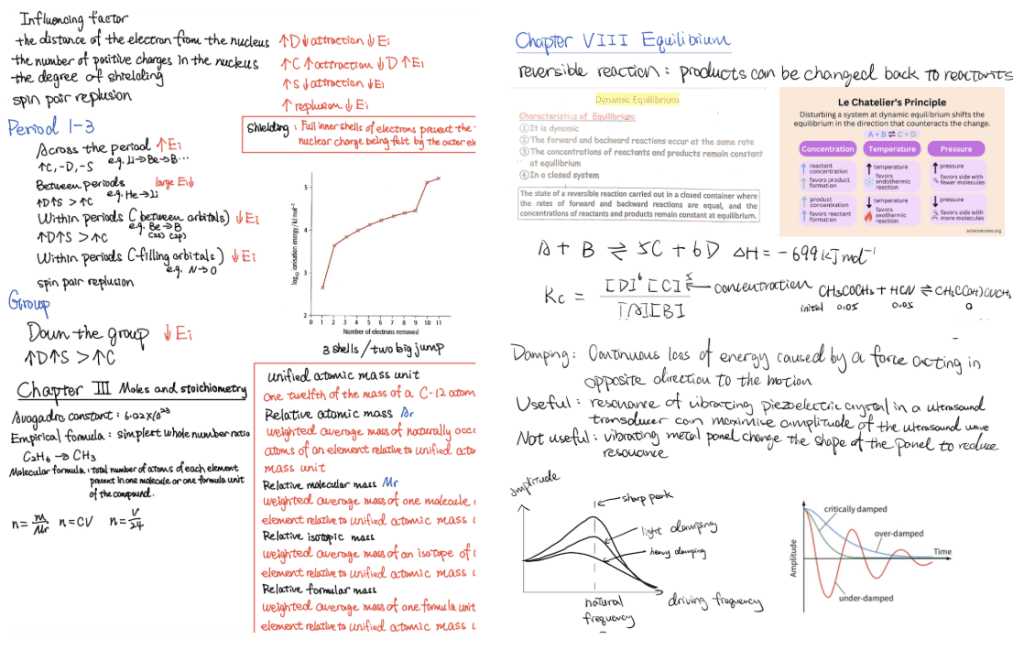 Influencing factor
the distance of the electron from the nucleus ↑D↓attraction↓Ei
the number of positive charges in the nucleus ↑C↑attraction↓D↑Ei
the degree of shielding ↑S↓attraction↓Ei
spin pair replusion ↑replusion↓Ei
Shielding: Full inner shells of electrons prevent the
nuclear charge being felt by the outer el
Period 1-3
Across the period ↑Ei
↑C, -D, -S e.g. Li→Be→B…
Between periods large Ei↓
↑D↑S>↑C e.g. He→Li
Within periods (between orbitals) ↓Ei
↑D↑S>↑C e.g. Be→B
(2s) (2p)
Within periods (-filling orbitals) ↓Ei
e.g. N→O
spin pair replusion
Group
Down the group ↓Ei
↑D↑S>↑C
log₁₀ ionisation energy / kJ mol⁻¹
5
4
3
2
0 1 2 3 4 5 6 7 8 9 10 11
Number of electrons removed
3 shells/two big jump
Chapter III Moles and stoichiometry
Avogadro constant: 6.02×10²³
Empirical formula: simplest whole number ratio
C₂H₆ → CH₃
Molecular formula: total number of atoms of each element
present in one molecule or one formula unit
of the compound.
n=m/Mr n=CV n=V/24
unified atomic mass unit
One twelfth of the mass of a C-12 atom
Relative atomic mass Ar
weighted average mass of naturally occ
atoms of an element relative to unified ato
mass unit
Relative molecular mass Mr
weighted average mass of one molecule
element relative to unified atomic mass u
Relative isotopic mass
weighted average mass of an isotope of
element relative to unified atomic mass u
Relative formular mass
weighted average mass of one formula unit
element relative to unified atomic mass u
Chapter VIII Equilibrium
reversible reaction: products can be changed back to reactants
Dynamic Equilibrium
Characteristics of Equilibrium:
①It is dynamic
②The forward and backward reactions occur at the same rate
③The concentrations of reactants and products remain constant
at equilibrium
④In a closed system
The state of a reversible reaction carried out in a closed container where
the rates of forward and backward reactions are equal, and the
concentrations of reactants and products remain constant at equilibrium.
Le Chatelier's Principle
Disturbing a system at dynamic equilibrium shifts the
equilibrium in the direction that counteracts the change.
A + B ⇌ C + D
Concentration Temperature Pressure
↑ reactant concentration
favors product formation
↑ temperature
favors endothermic reaction
↑ pressure
favors side with fewer molecules
↑ product concentration
favors reactant formation
↓ temperature
favors exothermic reaction
↓ pressure
favors side with more molecules
sciencenotes.org
A + B ⇌ 5C + 6D ΔH = -699 kJ mol⁻¹
Kc = [D]⁶[C]⁵/[A][B] ← concentration
CH₃COCH₃ + HCN ⇌ CH₃C(OH)CNCH₃
initial 0.05 0.05 0
Damping: Continuous loss of energy caused by a force acting in
opposite direction to the motion
Useful: resonance of vibrating piezoelectric crystal in a ultrasound
transducer can maximise amplitude of the ultrasound wave
Not useful: vibrating metal panel change the shape of the panel to reduce
resonance
amplitude
sharp peak
light damping
heavy damping
natural
frequency
driving frequency
critically damped
over-damped
Time
Amplitude
under-damped